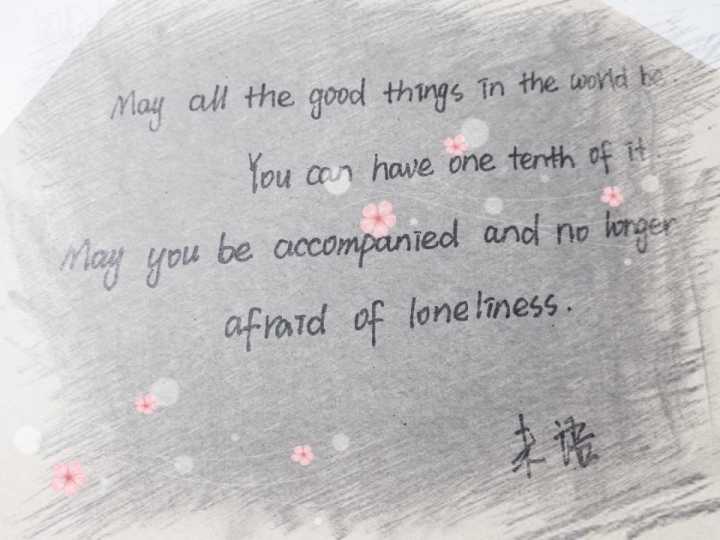 May all the good things in the world be.
You can have one tenth of it.
May you be accompanied and no longer
afraid of loneliness.
未语